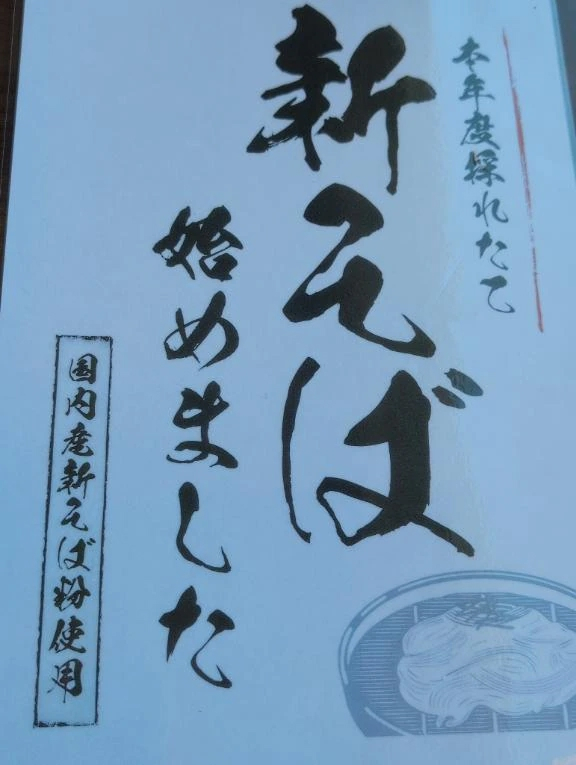 本年度採れたて
新そば
始めました
国内産新そば粉使用